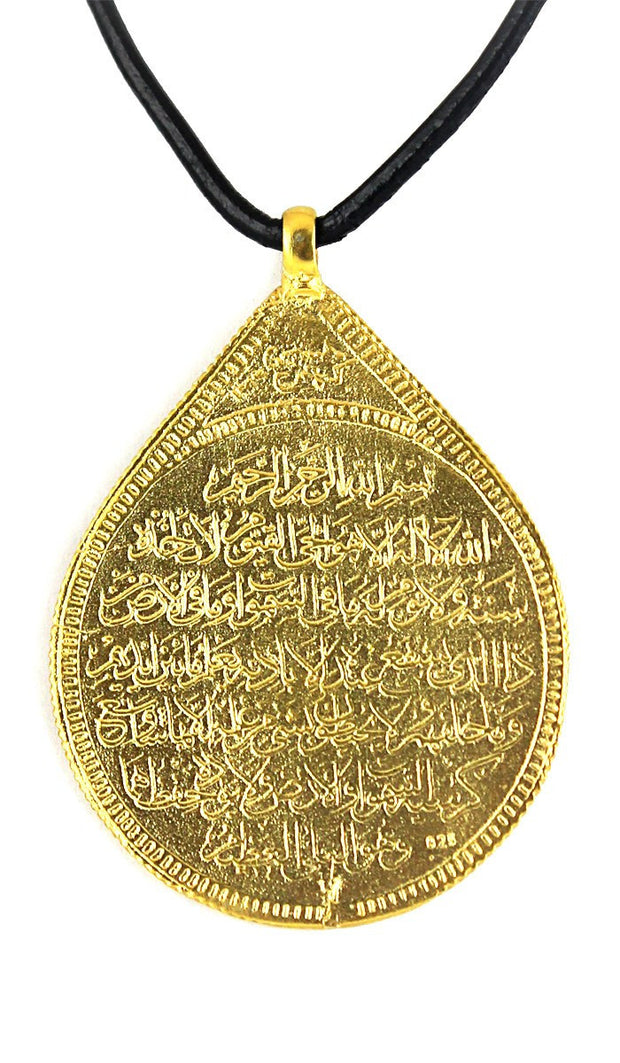 بسم الله الرحمن الرحيم
الله لا اله الا هو الحي القيوم لا تاخذه
سنة ولا نوم له ما في السموات وما في الارض
ذا الذي يشفع عنده الا باذنه يعلم ما بين ايديهم
وما خلفهم ولا يحيطون بشيء من علمه الا بما شاء وسع
كرسيه السموات والارض ولا يؤده حفظهما
وهو العلي العظيم
925